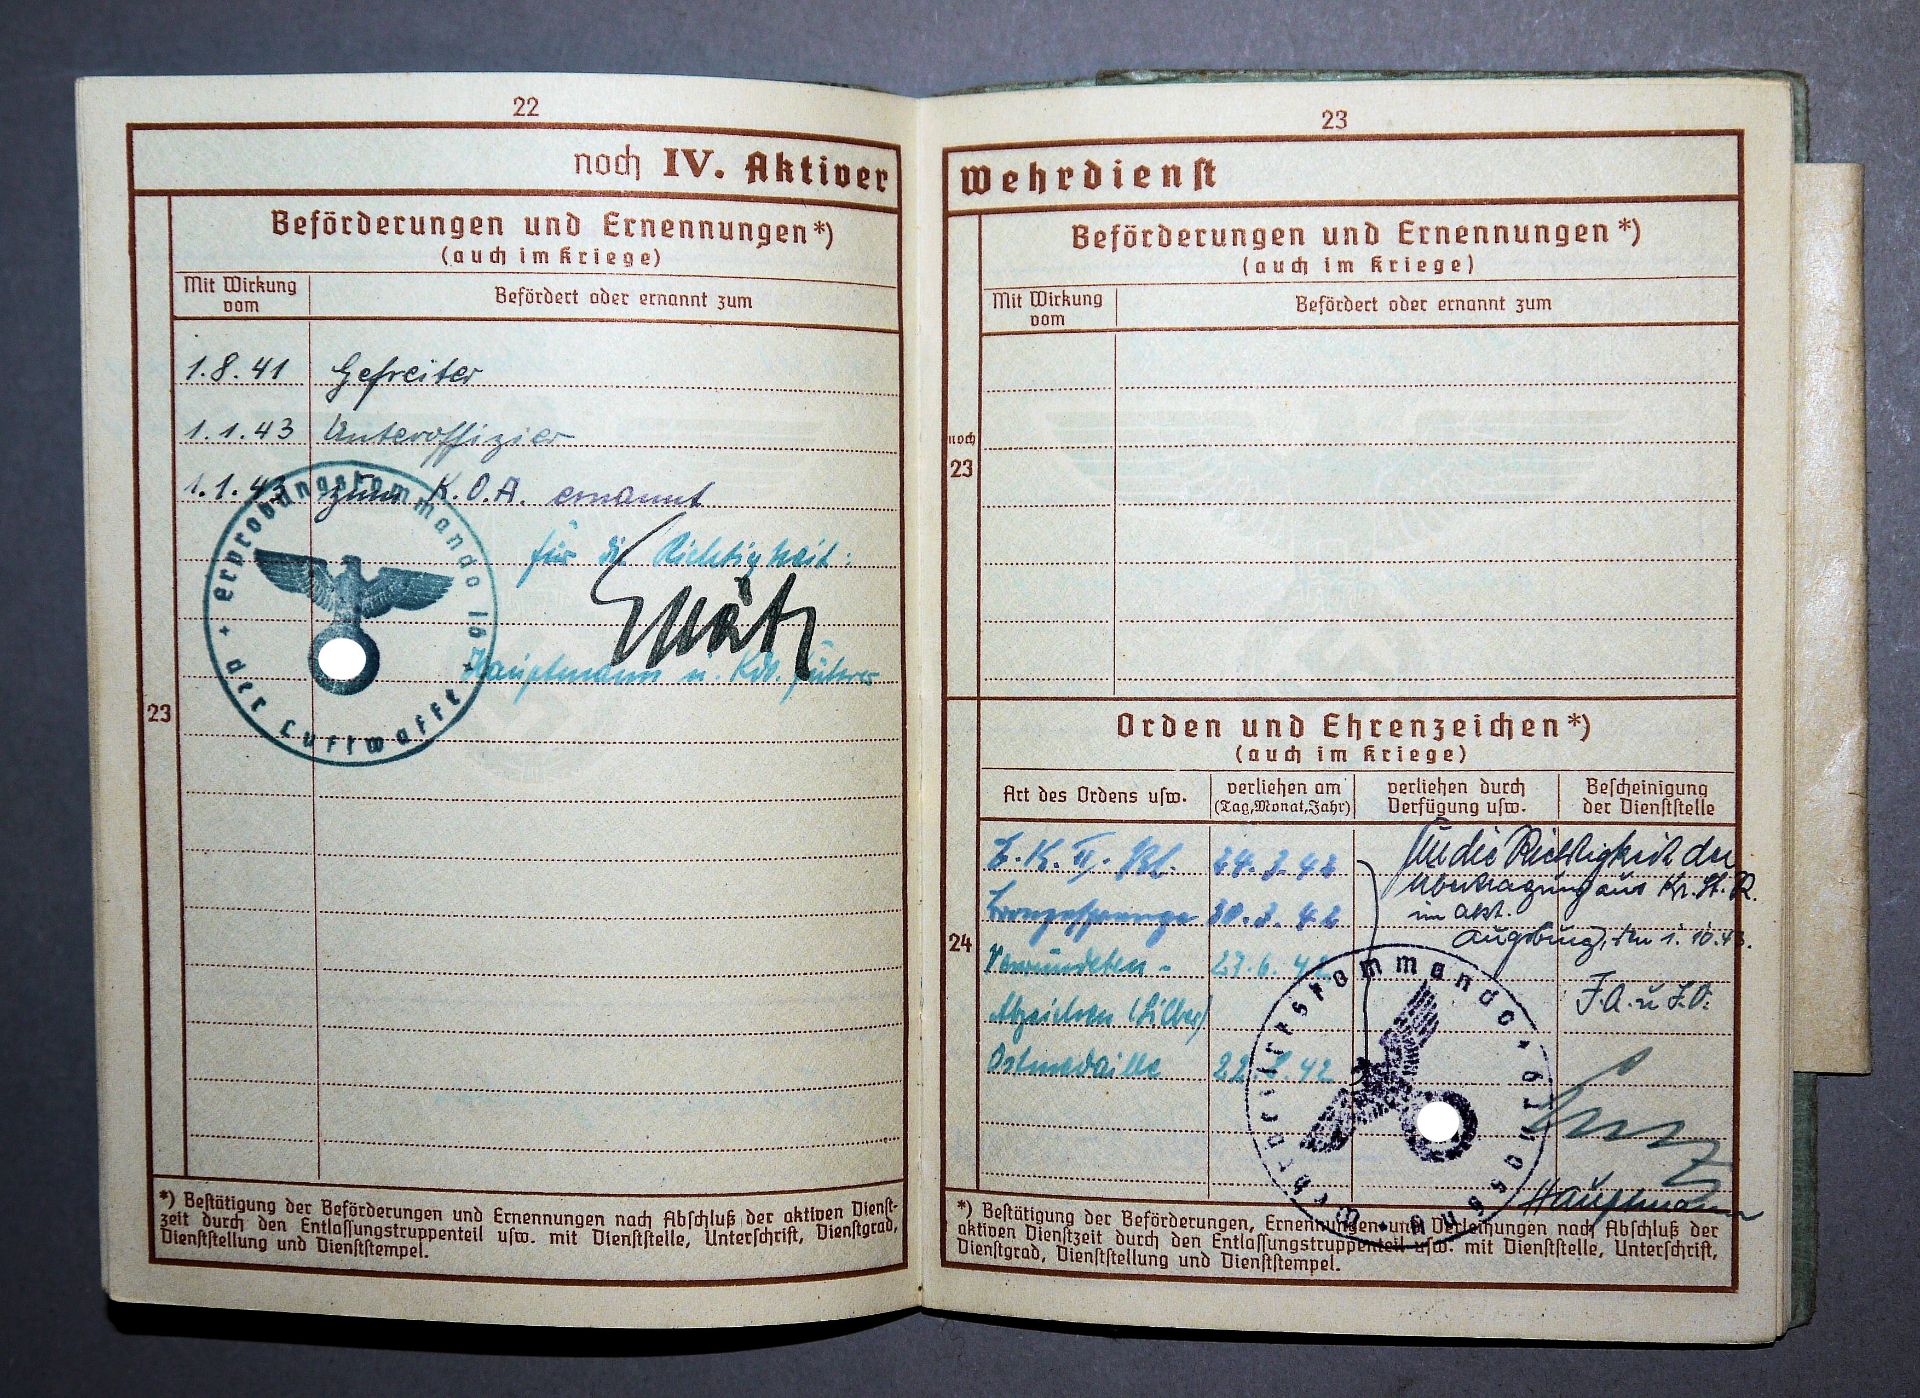 22
noch IV. Aktiver
Beförderungen und Ernennungen*)
(auch im Kriege)
Mit Wirkung vom
Befördert oder ernannt zum
1.8.41 Gefreiter
1.1.43 Unteroffizier
1.1.43 zum K.O.A. ernannt
für die Richtigkeit:
Hauptmann u. Kdo. Führer
erprobungskommando 16
der Luftwaffe
23
*) Bestätigung der Beförderungen und Ernennungen nach Abschluß der aktiven Dienst-
zeit durch den Entlassungstruppenteil usw. mit Dienststelle, Unterschrift, Dienstgrad,
Dienststellung und Dienststempel.
23
Wehrdienst
Beförderungen und Ernennungen*)
(auch im Kriege)
Mit Wirkung vom
Befördert oder ernannt zum
noch
23
Orden und Ehrenzeichen*)
(auch im Kriege)
Art des Ordens usw.
verliehen am
(Tag, Monat, Jahr)
verliehen durch
Verfügung usw.
Bescheinigung
der Dienststelle
24
E.K. II. Kl.
30.3.42
Verwundeten- 27.6.42
Abzeichen (Silber)
Ostmedaille 42
Für die Richtigkeit der
Übertragung aus Kr. St. R.
im akt.
Augsburg, den 1.10.43.
F.d.
Wehrbezirkskommando
Augsburg
Hauptmann
*) Bestätigung der Beförderungen, Ernennungen und Verleihungen nach Abschluß der
aktiven Dienstzeit durch den Entlassungstruppenteil usw. mit Dienststelle, Unterschrift,
Dienstgrad, Dienststellung und Dienststempel.